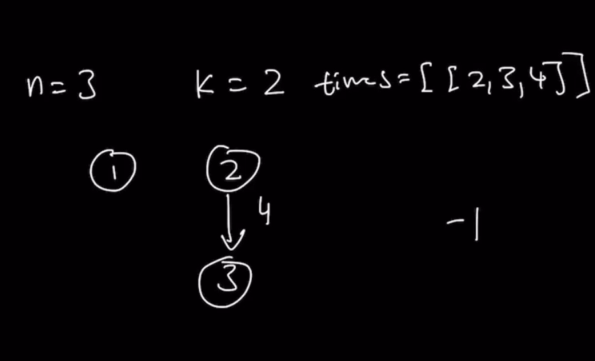 n=3 k=2 times=[[2,3,4]]
1 2
4
-1
3